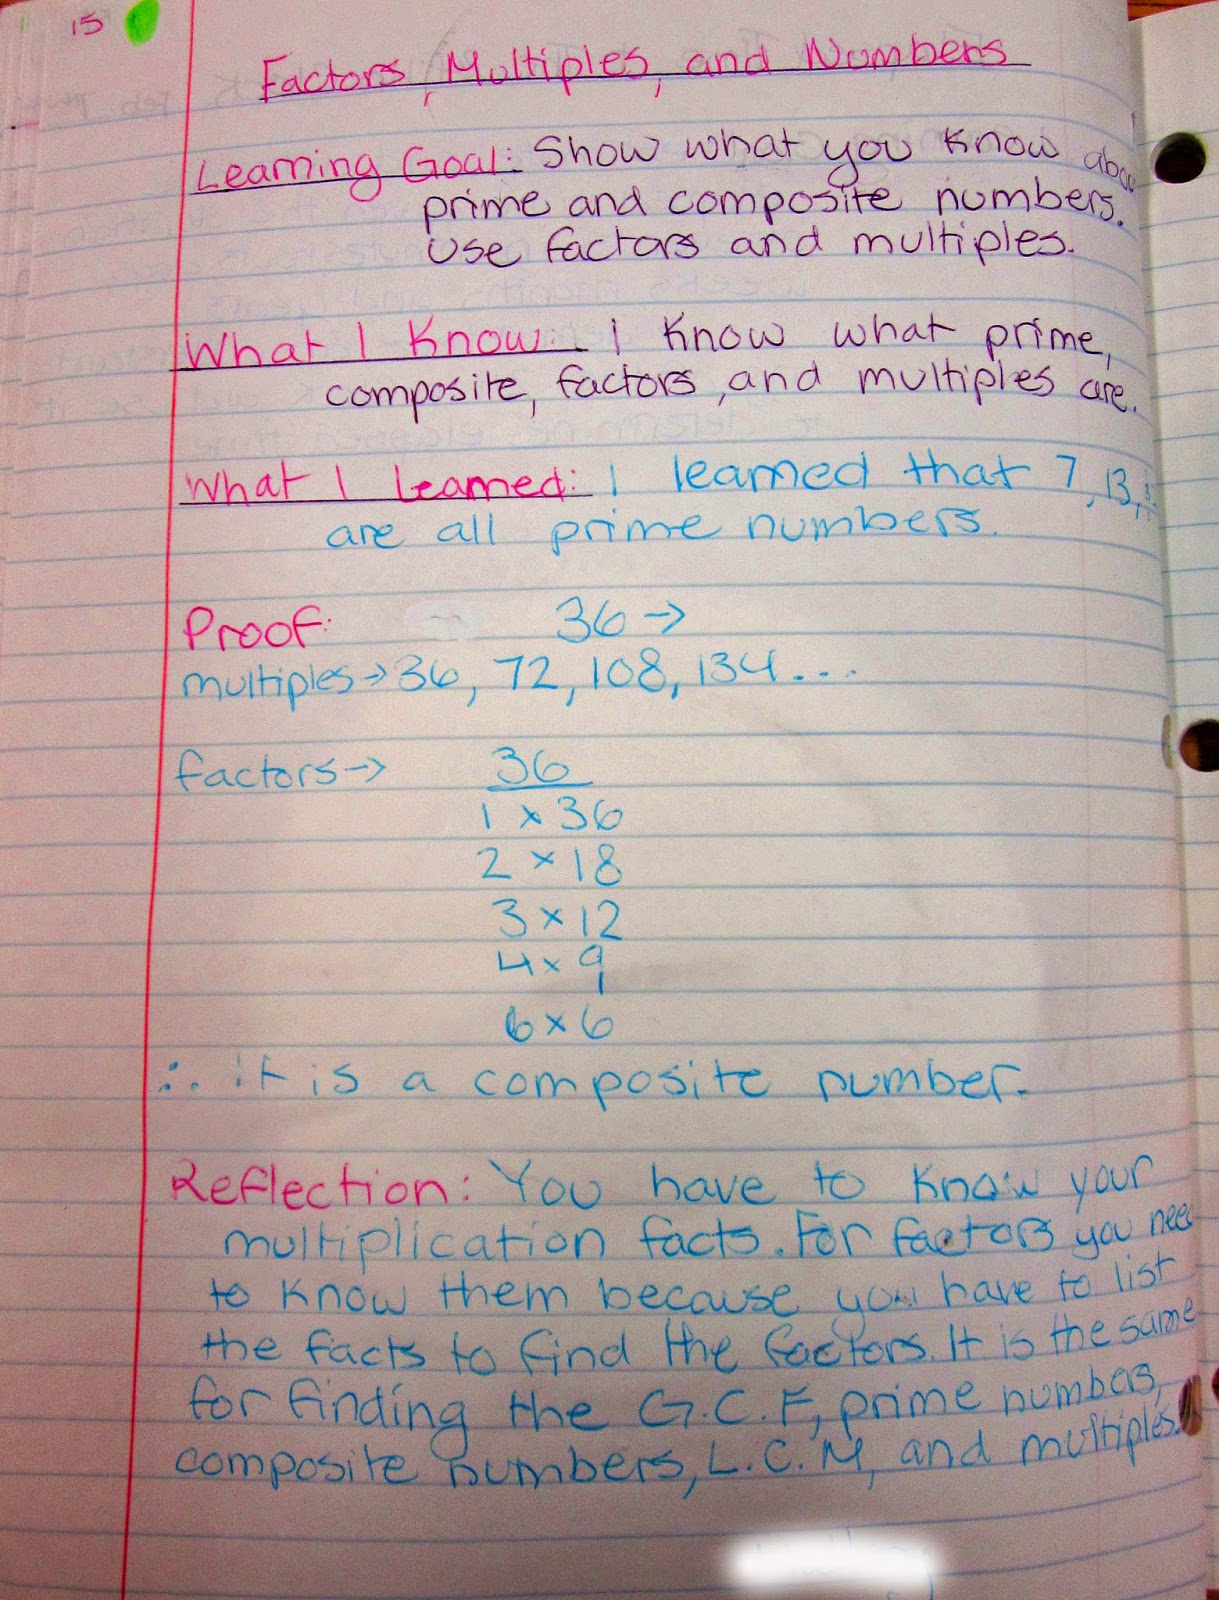 15
Factors, Multiples, and Numbers
Learning Goal: Show what you know
prime and composite numbers.
Use factors and multiples.
What I Know: I know what prime,
composite, factors, and multiples are.
What I Learned: I learned that 7, 13,
are all prime numbers.
Proof: 36 →
multiples → 36, 72, 108, 134....
factors → 36
1 × 36
2 × 18
3 × 12
4 × 9
6 × 6
∴ it is a composite number.
Reflection: You have to know your
multiplication facts. For factors you need
to know them because you have to list
the facts to find the factors. It is the same
for finding the G.C.F, prime numbers,
composite numbers, L.C.M, and multiples.